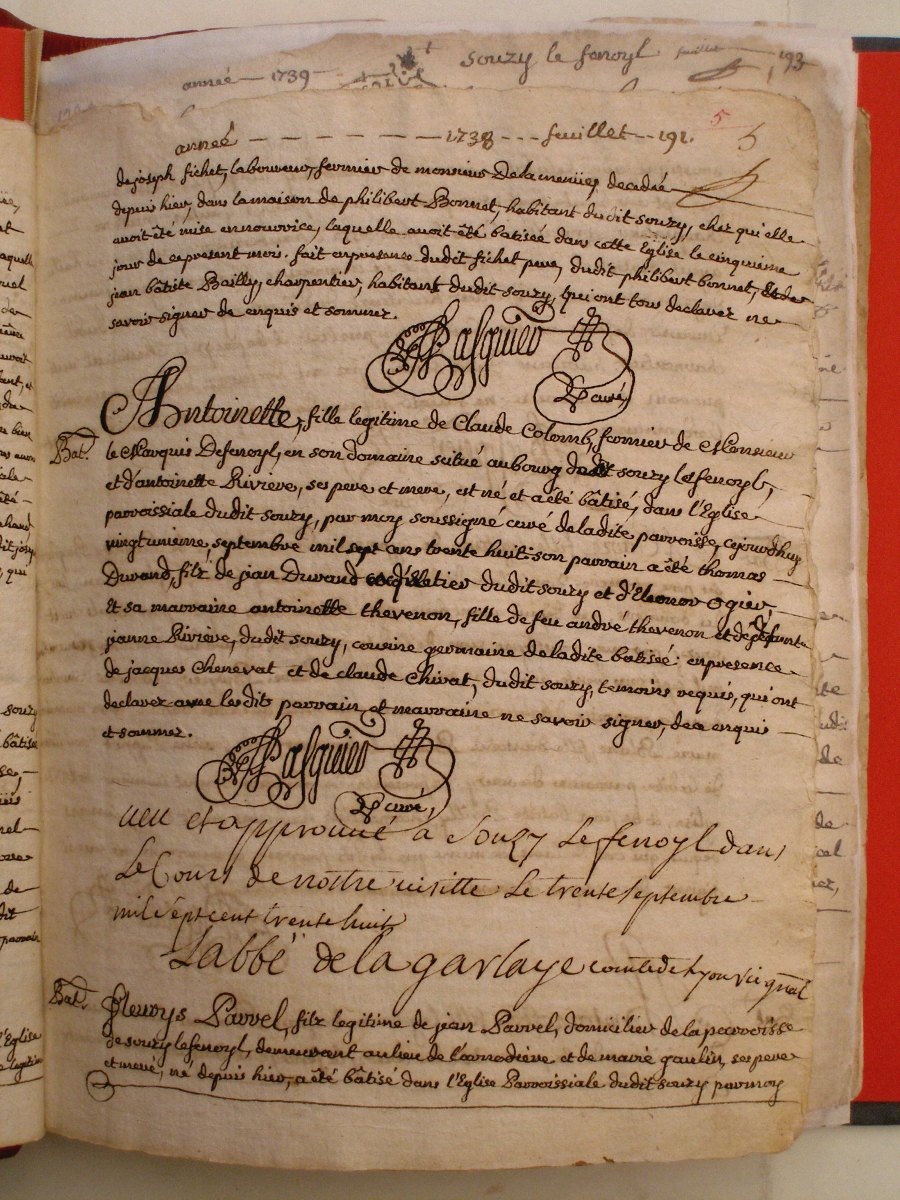 année 1739 souzy le fenoyl feuillet 193
année 1738 feuillet 191.
5
de joseph fichet, laboureur, fermier de monsieur Delameniie, decedée
depuis hier, dans la maison de philibert Bonnet, habitant dudit souzy, chez qui elle
avoit été mise en nourrice, laquelle avoit été batisée dans cette Eglise le cinquieme
jour de ce present mois. fait en presence dudit fichet pere, dudit philibert bonnet, et de
jean bâtiste Bailly, charpentier, habitant dudit souzy, qui ont tous declarez ne
savoir signer de enquis et sommez.
Pasquier
curé,
Antoinette, fille legitime de Claude Colomb, fermier de Monsieur
Bat.
le Marquis Defenoyl, en son domaine scitué au bourg de souzy le fenoyl,
et d'antoinette Riviere, ses pere et mere, est né et a été bâtisé, dans l'Eglise
parroissiale dudit souzy, par moy soussigné curé de ladite parroisse, cejourdhuy
vingtunieme, septembre mil sept ans trente huit: son parrain a été thomas
Durand, filz de jean Durand dudit souzy et d'Eleonor ogier,
Et sa marraine antoinette thevenon, fille de feu andré thevenon et de defunte
janne Riviève, dudit souzy, cousine germaine de ladite batisé: en presence
de jacques Chenevat et de claude Chirat, dudit souzy, temoins requis, qui ont
declarez avec lesdits parrain et marraine ne savoir signer, de ce enquis
et sommez.
Pasquier
curé,
veu et approuvé à Souzy Le fenoyl dans
Le Cours de nostre visitte Le trente septembre
mil sept cent trente huit
L'abbé de la garlaye comte de Lyon vic gnal
Bat.
fleurys Pavvel, filz legitime de jean Pavvel, domicilier de la parroisse
de souzy le fenoyl, demeurant au lieu de l'arrodiere et de marie gaulin, ses pere
et mere, né depuis hier, a été bâtisé dans l'Eglise Parroissiale dudit souzy par moy